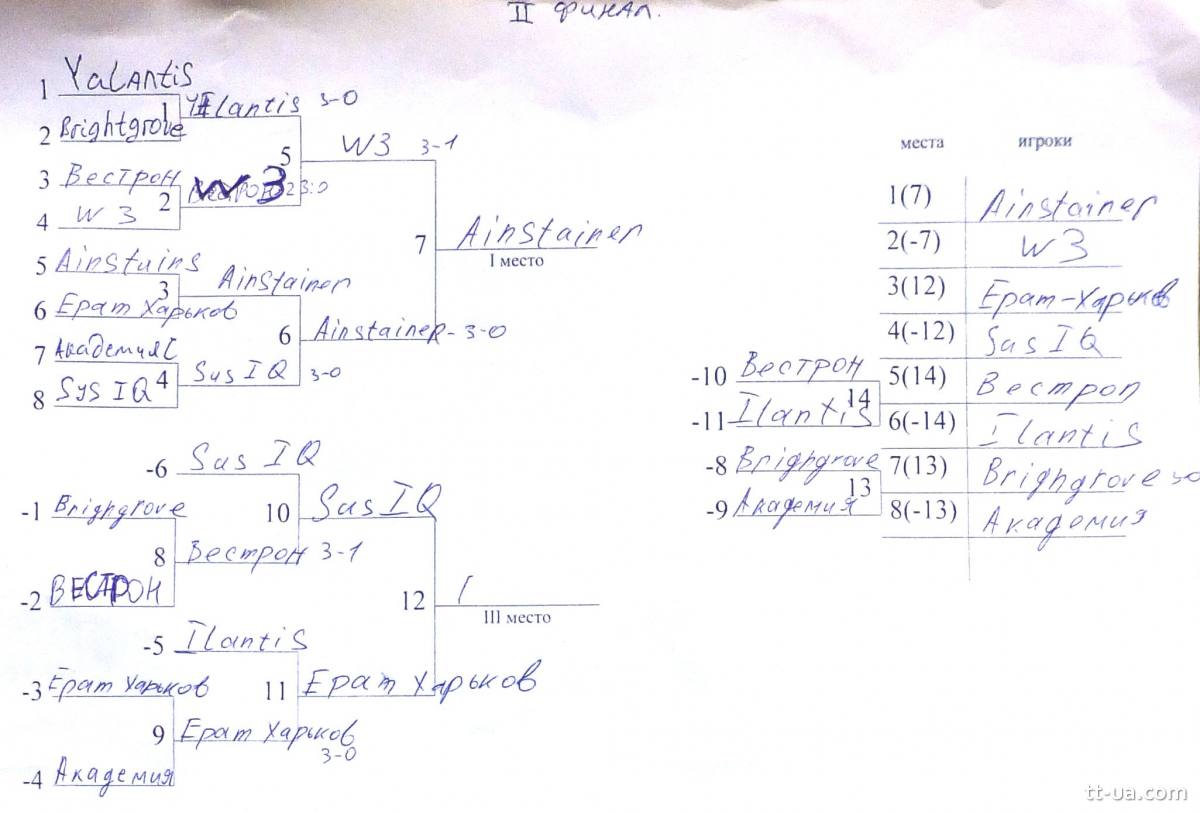 II финал.
1 Yalantis
1 Ilantis 3-0
2 Brightgrove
5 W3 3-1
3 Вестрон
2 W3 3:0
4 W 3
7 Ainstainer
I место
5 Ainstains
3 Ainstainer
6 Ерат Харьков
6 Ainstainer - 3-0
7 Академия
4 Sus IQ 3-0
8 SYS IQ
-6 Sus IQ
10 Sus IQ
-1 Brighgrove
8 Вестрон 3-1
-2 ВЕСТРОН
12
III место
-5 Ilantis
11 Ерат Харьков
-3 Ерат Харьков
9 Ерат Харьков
3-0
-4 Академия
места игроки
1(7) Ainstainer
2(-7) W3
3(12) Ерат-Харьков
4(-12) Sus IQ
5(14) Вестрон
6(-14) Ilantis
7(13) Brighgrove 3-0
8(-13) Академия
-10 Вестрон
14
-11 Ilantis
-8 Brighgrove
13
-9 Академия
tt-ua.com